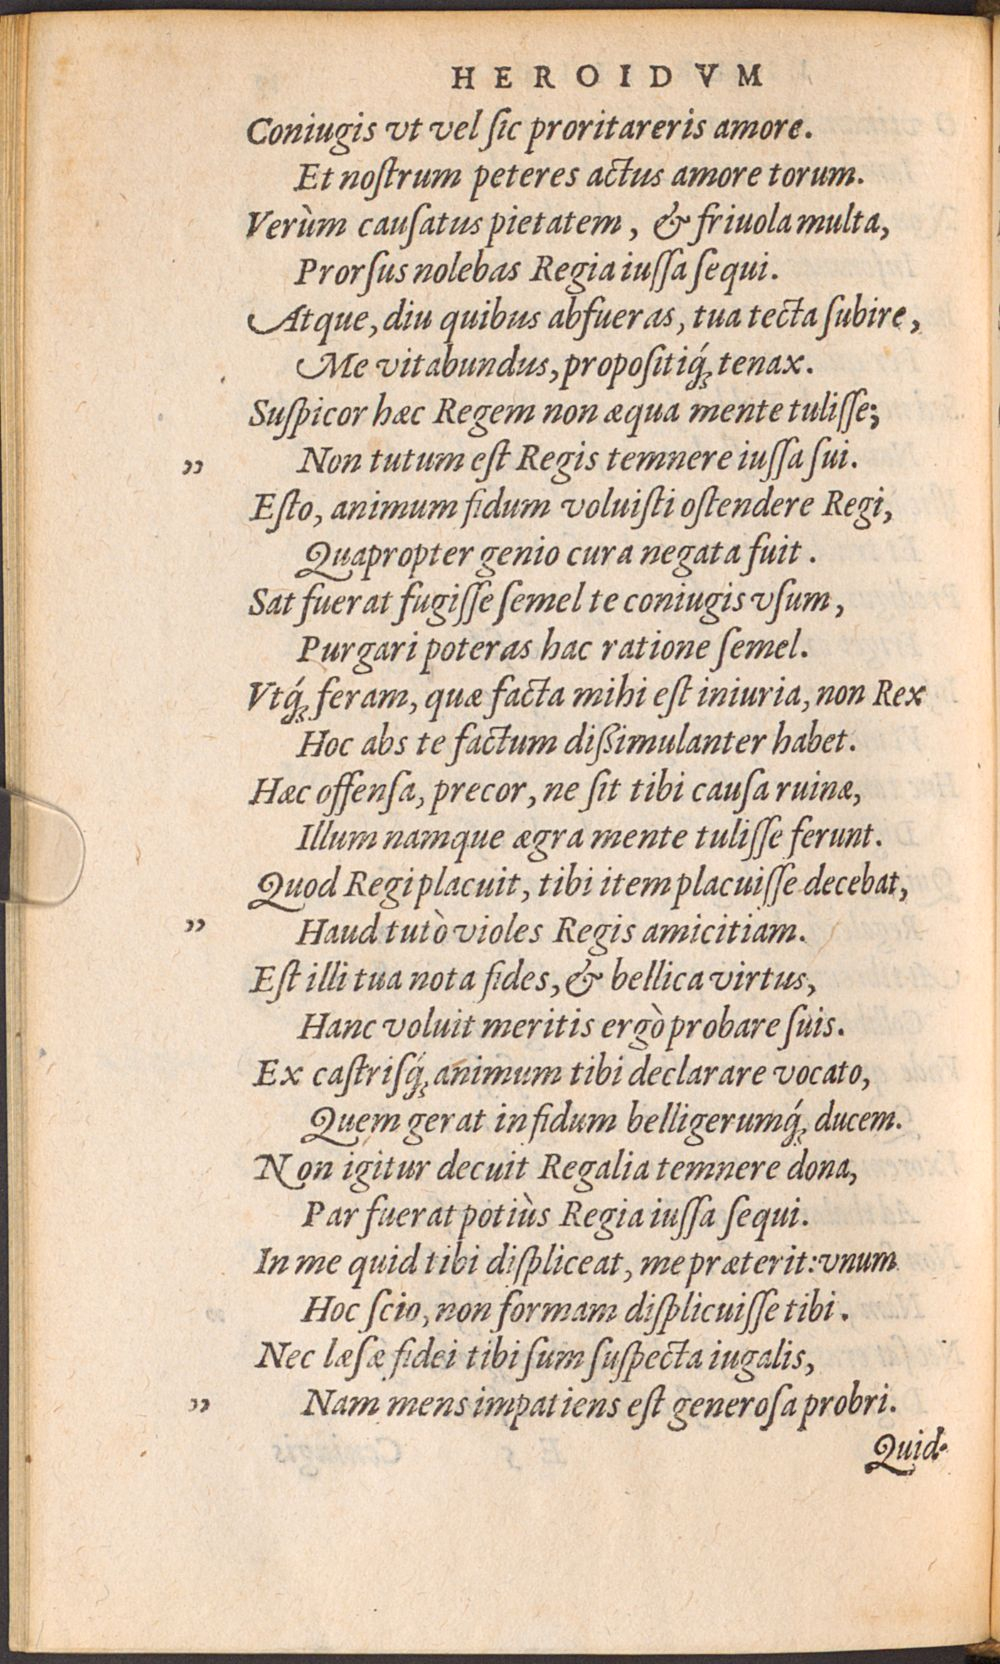 HEROIDVM
Coniugis vt vel ſic proritareris amore.
Et noſtrum peteres actus amore torum.
Verùm cauſatus pietatem, & friuola multa,
Prorſus nolebas Regia iuſſa ſequi.
Atque, diu quibus abfueras, tua tecta ſubire,
Me vitabundus, propoſitiq́; tenax.
Suſpicor hæc Regem non æqua mente tuliſſe;
„ Non tutum eſt Regis temnere iuſſa ſui.
Eſto, animum fidum voluiſti oſtendere Regi,
Quapropter genio cura negata fuit.
Sat fuerat fugiſſe ſemel te coniugis vſum,
Purgari poteras hac ratione ſemel.
Vtq́; feram, quæ facta mihi eſt iniuria, non Rex
Hoc abs te factum dißimulanter habet.
Hæc offenſa, precor, ne ſit tibi cauſa ruinæ,
Illum namque ægra mente tuliſſe ferunt.
Quod Regi placuit, tibi item placuiſſe decebat,
„ Haud tutò violes Regis amicitiam.
Eſt illi tua nota fides, & bellica virtus,
Hanc voluit meritis ergò probare ſuis.
Ex caſtriſq́; animum tibi declarare vocato,
Quem gerat in fidum belligerumq́; ducem.
Non igitur decuit Regalia temnere dona,
Par fuerat potiùs Regia iuſſa ſequi.
In me quid tibi diſpliceat, me præterit: vnum
Hoc ſcio, non formam diſplicuiſſe tibi.
Nec læſæ fidei tibi ſum ſuſpecta iugalis,
„ Nam mens impatiens eſt generoſa probri.
Quid-